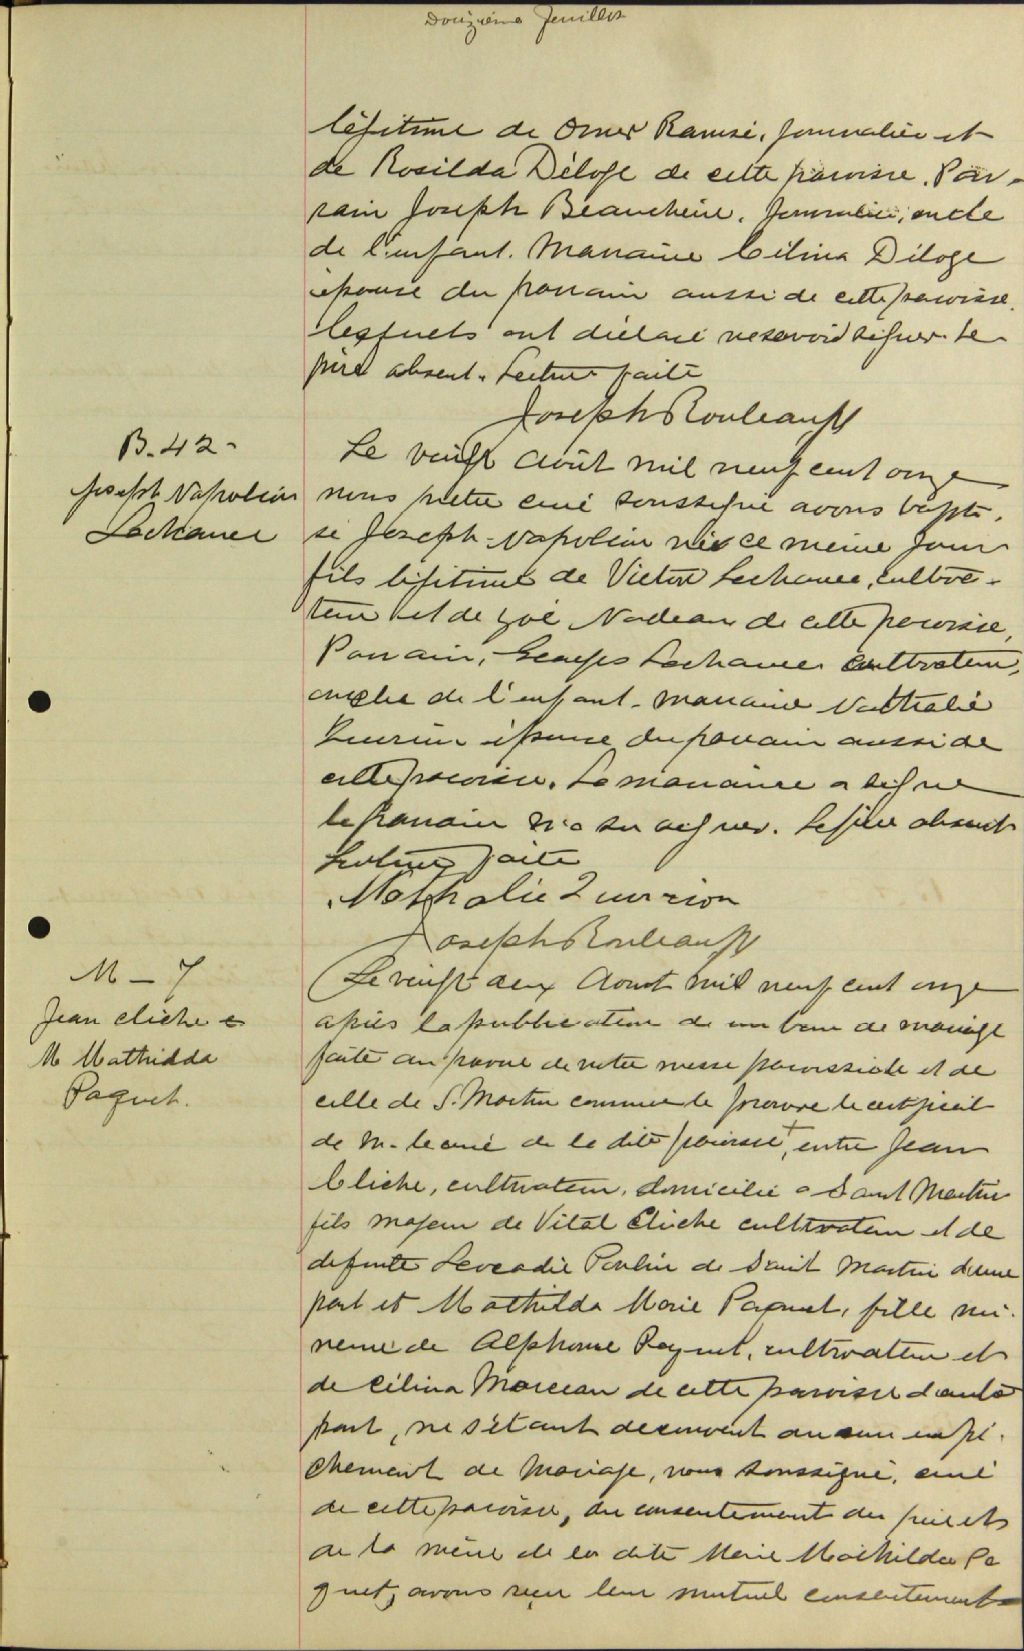 Douzième feuillet
légitime de Omer Ramsé, journalier et
de Rosilda Déloge de cette paroisse. Par-
rain Joseph Beauchêne, journalier, oncle
de l'enfant. Marraine Célina Déloge
épouse du parrain aussi de cette paroisse.
lesquels ont déclaré ne savoir signer. Le
père absent. Lecture faite
Joseph Rouleau ptr
B. 42-
Joseph Napoléon
Lachance
Le vingt août mil neuf cent onze
nous prêtre curé soussigné avons bapti-
sé Joseph-Napoléon né ce même jour
fils légitime de Victor Lachance, cultiva-
teur et de Zoé Nadeau de cette paroisse,
Parrain, Georges Lachance cultivateur,
oncle de l'enfant. marraine Nathalie
épouse du parrain aussi de
cette paroisse. La marraine a signé
le parrain n'a su signer. Le père absent
Lecture faite
Nathalie Quirion
Joseph Rouleau ptr
M-7
Jean Cliche &
M Mathilda
Paquet.
Le vingt deux Août mil neuf cent onze
après la publication de un banc de mariage
faite au prône de notre messe paroissiale et de
celle de S. Martin comme le prouve le certificat
de M. le curé de la dite paroisse +, entre Jean
Cliche, cultivateur, domicilié à Saint Martin
fils majeur de Vital Cliche cultivateur et de
defunte Leocadie Poulin de Saint Martin d'une
part et Mathilda Marie Paquet, fille mi-
neure de Alphonse Paquet, cultivateur et
de Célina Marceau de cette paroisse d'autre
part, ne s'étant découvert aucun empê-
chement de mariage, nous soussigné, curé
de cette paroisse, du consentement du père et
de la mère de la dite Marie Mathilda Pa
quet, avons reçu leur mutuel consentement